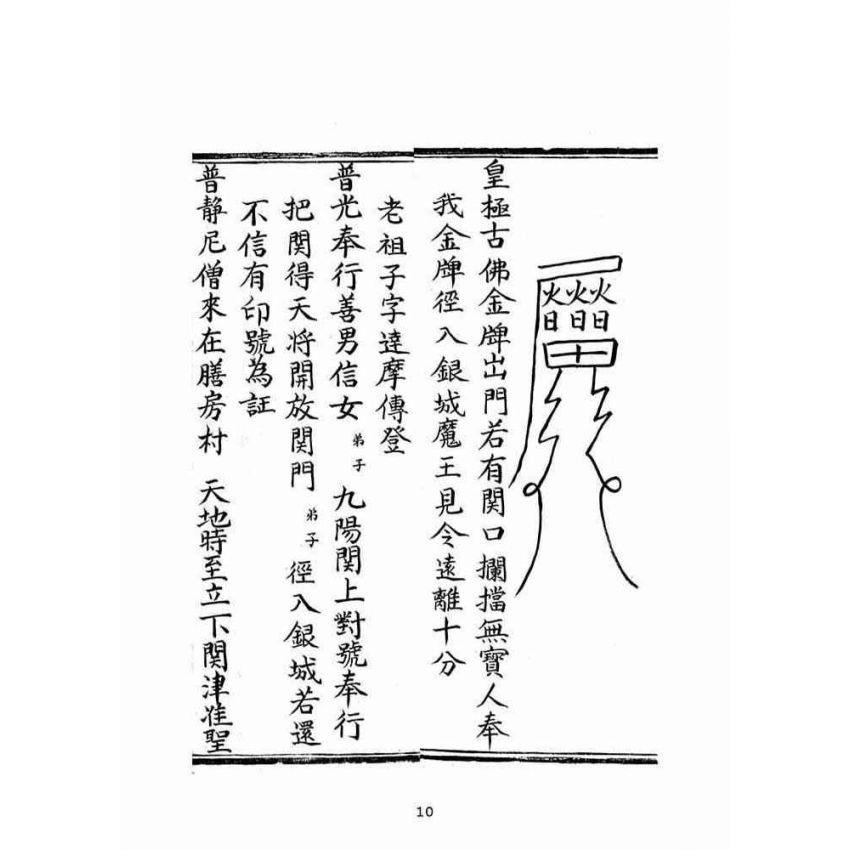 皇極古佛金牌出門若有関口攔擋無寶人奉
我金牌徑入銀城魔王見令遠離十分
老祖子字達摩傳登
普光奉行善男信女 弟子 九陽関上對號奉行
把関得天将開放関門 弟子 徑入銀城若還
不信有印號為証
普静尼僧來在膳房村 天地時至立下関津准聖
10